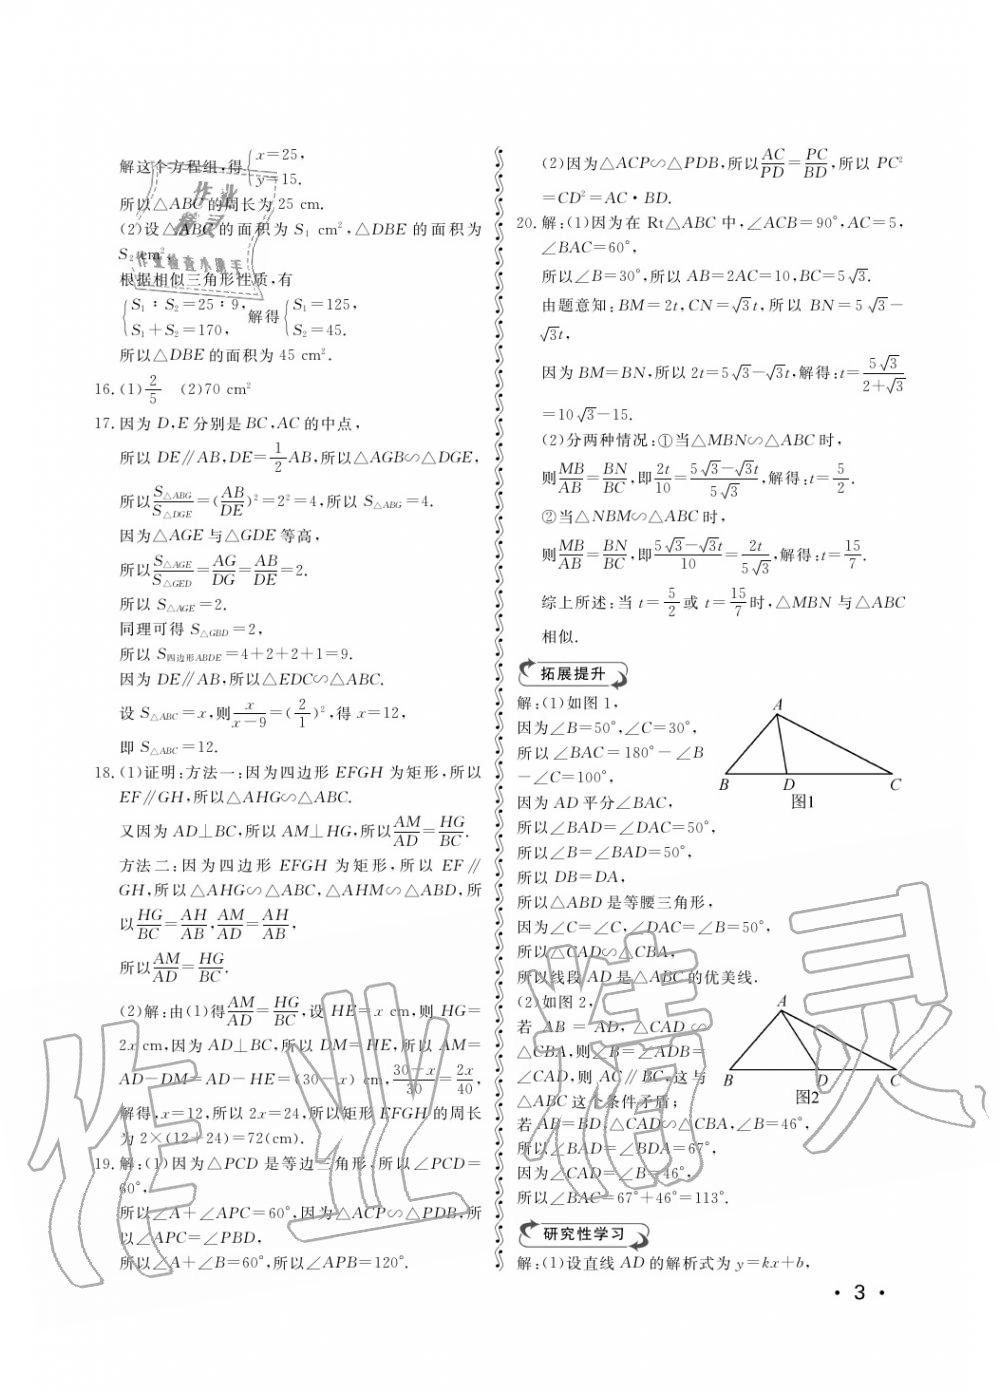 解这个方程组,得{x=25, y=15.
所以△ABC的周长为25 cm.
(2)设△ABC的面积为S₁ cm²,△DBE的面积为
S₂ cm²,
根据相似三角形性质,有
{S₁∶S₂=25∶9, S₁+S₂=170, 解得{S₁=125, S₂=45.
所以△DBE的面积为45 cm².
16.(1)2/5 (2)70 cm²
17.因为D,E分别是BC,AC的中点,
所以DE∥AB,DE=1/2AB,所以△AGB∽△DGE,
所以S△ABG/S△DGE=(AB/DE)²=2²=4,所以S△ABG=4.
因为△AGE与△GDE等高,
所以S△AGE/S△GED=AG/DG=AB/DE=2.
所以S△AGE=2.
同理可得S△GBD=2,
所以S四边形ABDE=4+2+2+1=9.
因为DE∥AB,所以△EDC∽△ABC.
设S△ABC=x,则x/(x-9)=(2/1)²,得x=12,
即S△ABC=12.
18.(1)证明:方法一:因为四边形EFGH为矩形,所以
EF∥GH,所以△AHG∽△ABC.
又因为AD⊥BC,所以AM⊥HG,所以AM/AD=HG/BC.
方法二:因为四边形EFGH为矩形,所以EF∥
GH,所以△AHG∽△ABC,△AHM∽△ABD,所
以HG/BC=AH/AB,AM/AD=AH/AB,
所以AM/AD=HG/BC.
(2)解:由(1)得AM/AD=HG/BC,设HE=x cm,则HG=
2x cm,因为AD⊥BC,所以DM=HE,所以AM=
AD-DM=AD-HE=(30-x) cm,(30-x)/30=2x/40,
解得,x=12,所以2x=24,所以矩形EFGH的周长
为2×(12+24)=72(cm).
19.解:(1)因为△PCD是等边三角形,所以∠PCD=
60°,
所以∠A+∠APC=60°,因为△ACP∽△PDB,所
以∠APC=∠PBD,
所以∠A+∠B=60°,所以∠APB=120°.
(2)因为△ACP∽△PDB,所以AC/PD=PC/BD,所以PC²
=CD²=AC·BD.
20.解:(1)因为在Rt△ABC中,∠ACB=90°,AC=5,
∠BAC=60°,
所以∠B=30°,所以AB=2AC=10,BC=5√3.
由题意知:BM=2t,CN=√3t,所以BN=5√3-
√3t,
因为BM=BN,所以2t=5√3-√3t,解得:t=5√3/(2+√3)
=10√3-15.
(2)分两种情况:①当△MBN∽△ABC时,
则MB/AB=BN/BC,即2t/10=(5√3-√3t)/5√3,解得:t=5/2.
②当△NBM∽△ABC时,
则MB/AB=BN/BC,即(5√3-√3t)/10=2t/5√3,解得:t=15/7.
综上所述:当t=5/2或t=15/7时,△MBN与△ABC
相似.
拓展提升
解:(1)如图1,
因为∠B=50°,∠C=30°,
所以∠BAC=180°-∠B
-∠C=100°,
因为AD平分∠BAC,
所以∠BAD=∠DAC=50°,
所以∠B=∠BAD=50°,
所以DB=DA,
所以△ABD是等腰三角形,
因为∠C=∠C,∠DAC=∠B=50°,
所以△CAD∽△CBA,
所以线段AD是△ABC的优美线.
A
B D C
图1
(2)如图2,
若AB=AD,△CAD∽
△CBA,则∠B=∠ADB=
∠CAD,则AC∥BC,这与
△ABC这个条件矛盾;
若AB=BD,△CAD∽△CBA,∠B=46°,
所以∠BAD=∠BDA=67°,
因为∠CAD=∠B=46°,
所以∠BAC=67°+46°=113°.
A
B D C
图2
研究性学习
解:(1)设直线AD的解析式为y=kx+b,
·3·
作业精灵
作业检查小助手
作业精灵